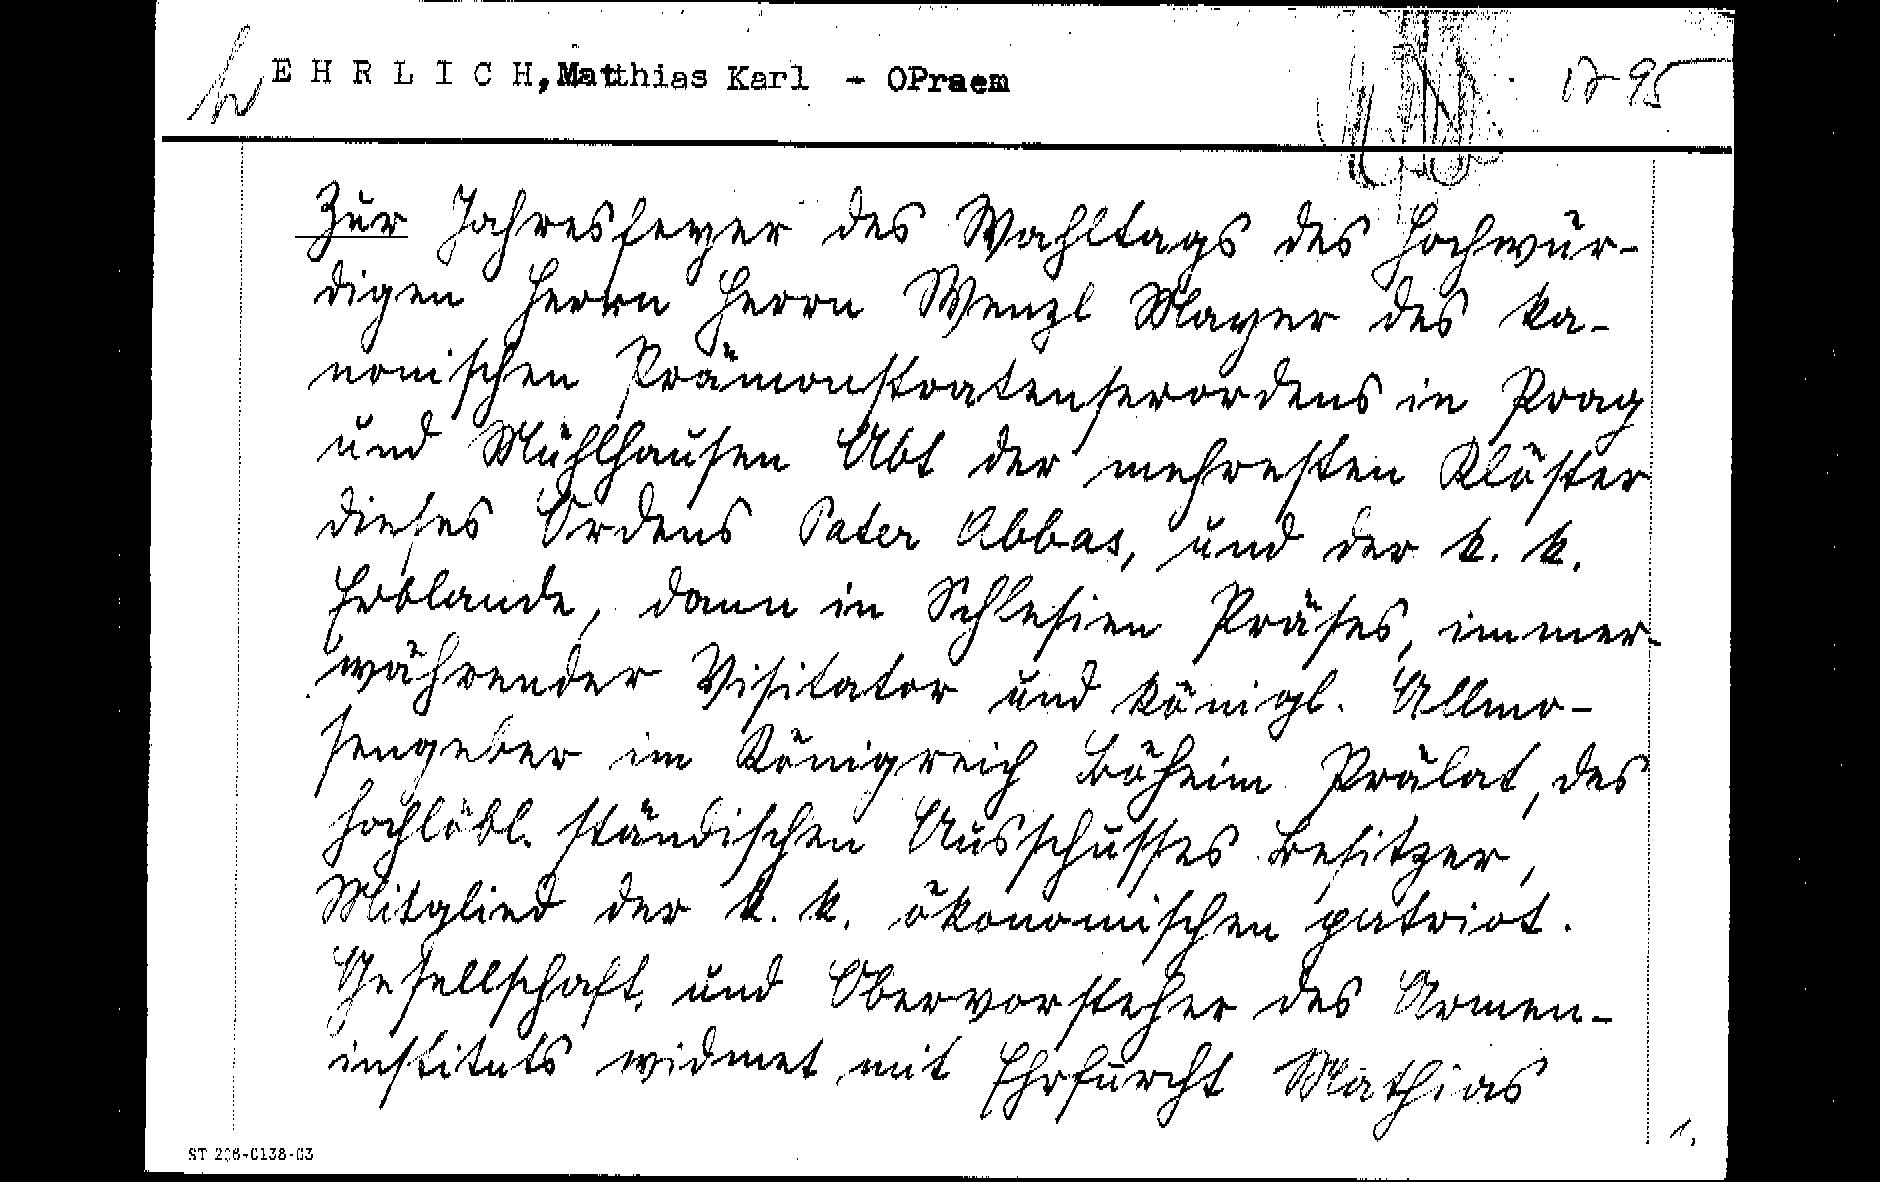 EHRLICH, Matthias Karl - OPraem
1795
Zur Jahresfeyer des Wahltags des Hochwür-
digen Herrn Herrn Wenzl Mayer des ka-
nonischen Prämonstratenserordens in Prag
und Mühlhausen Abt der mehresten Klöster
dieses Ordens Pater Abbas, und der k. k.
Erblande, dann in Schlesien Präses, immer-
währender Visitator und königl. Allmo-
sengeber im Königreich Böheim Prälat, des
hochlöbl. ständischen Ausschusses Besitzer,
Mitglied der k. k. ökonomischen patriot.
Gesellschaft, und Obervorsteher des Armen-
instituts widmet mit Ehrfurcht Mathias
1.
ST 206-0138-03